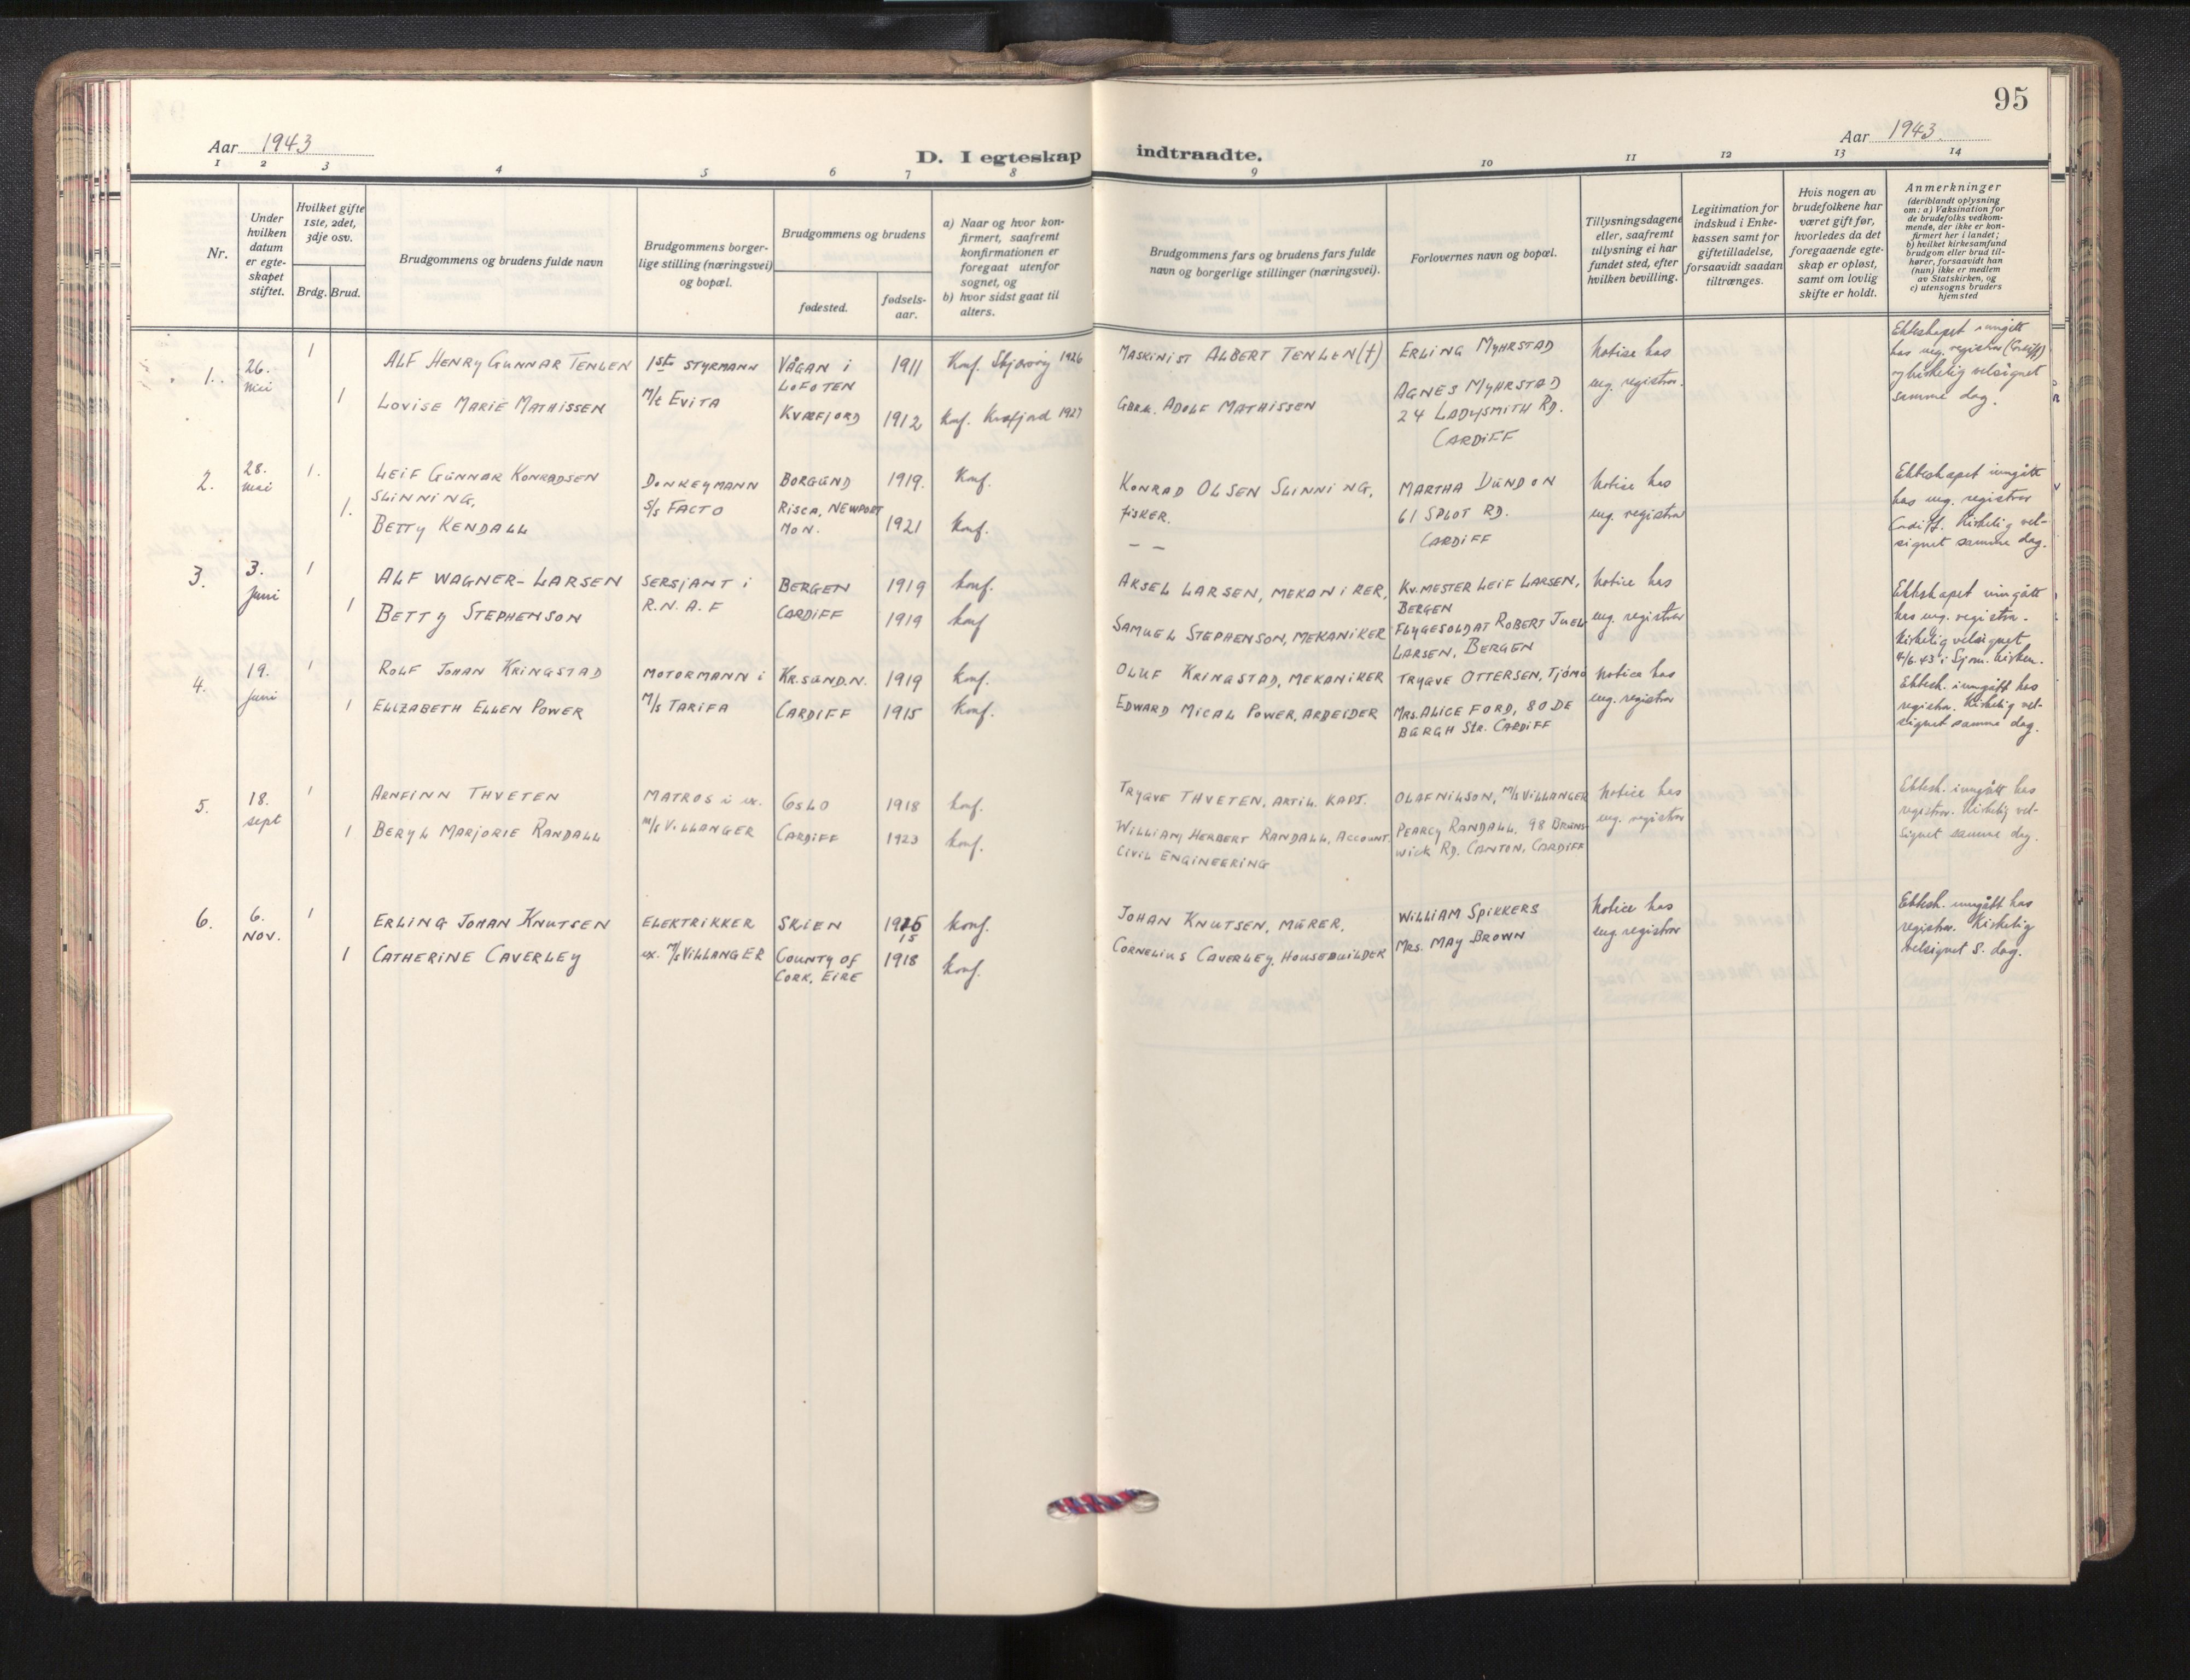 95
Aar 1943
Aar 1943
D. I egteskap indtraadte.
1 2 3 4 5 6 7 8 9 10 11 12 13 14
Nr.
Under
hvilken
datum
er egte-
skapet
stiftet.
Hvilket gifte
1ste, 2det,
3dje osv.
Brdg. Brud.
Brudgommens og brudens fulde navn
Brudgommens borger-
lige stilling (næringsvei)
og bopæl.
Brudgommens og brudens
fødested.
fødsels-
aar.
a) Naar og hvor kon-
firmert, saafremt
konfirmationen er
foregaat utenfor
sognet, og
b) hvor sidst gaat til
alters.
Brudgommens fars og brudens fars fulde
navn og borgerlige stillinger (næringsvei).
Forlovernes navn og bopæl.
Tillysningsdagene
eller, saafremt
tillysning ei har
fundet sted, efter
hvilken bevilling.
Legitimation for
indskud i Enke-
kassen samt for
giftetilladelse,
forsaavidt saadan
tiltrænges.
Hvis nogen av
brudefolkene har
været gift før,
hvorledes da det
foregaaende egte-
skap er opløst,
samt om lovlig
skifte er holdt.
Anmerkninger
(deriblandt oplysning
om: a) Vaksination for
de brudefolks vedkom-
mende, der ikke er kon-
firmert her i landet;
b) hvilket kirkesamfund
brudgom eller brud til-
hører, forsaavidt han
(hun) ikke er medlem
av Statskirken, og
c) utensogns bruders
hjemsted
1.
26.
mai
1
1
Alf Henry Gunnar Tenlen
Lovise Marie Mathissen
1ste styrmann
M/t Evita
Vågan i
Lofoten
Kvæfjord
1911
1912
Konf. Skjervøy 1926
Konf. Kvæfjord 1927
Maskinist Albert Tenlen (†)
Gbrk. Adolf Mathissen
Erling Myhrstad
Agnes Myhrstad
24 Ladysmith Rd.
Cardiff
Notice hos
eng. registrar.
Ekteskapet inngått
hos eng. registrar (Cardiff)
og kirkelig velsignet
samme dag.
2.
28.
mai
1.
1.
Leif Gunnar Konradsen
Slinning,
Betty Kendall
Donkeymann
S/s Facto
Borgund
Risca, Newport
Mon.
1919.
1921
Konf.
Konf.
Konrad Olsen Slinning,
fisker.
— —
Martha Dundon
61 Splot Rd.
Cardiff
Notice hos
eng. registrar
Ekteskapet inngått
hos eng. registrar
Cardiff. Kirkelig vel-
signet samme dag.
3.
3.
juni
1
1
Alf Wagner-Larsen
Betty Stephenson
Sersjant i
R.N.A.F
Bergen
Cardiff
1919
1919
konf.
konf
Aksel Larsen, mekaniker,
Samuel Stephenson, mekaniker
Kv.mester Leif Larsen,
Bergen
Flygesoldat Robert Juel
Larsen, Bergen
Notice hos
eng. registrar
Ekteskapet inngått
hos eng. registrar.
Kirkelig velsignet
4/6.43 i Sjøm. kirken.
4.
19.
juni
1
1
Rolf Johan Kringstad
Elizabeth Ellen Power
Motormann i
M/s Tarifa
Kr.sund.N.
Cardiff
1919
1915
konf.
konf.
Oluf Kringstad, mekaniker
Edward Mical Power, arbeider
Trygve Ottersen, Tjömö
Mrs. Alice Ford, 80 De
Burgh Str. Cardiff
Notice hos
eng. registrar
Ektesk. inngått hos
registrar. Kirkelig vel-
signet samme dag.
5.
18.
sept
1
1
Arnfinn Thveten
Beryl Marjorie Randall
Matros i ex.
m/s Villanger
Oslo
Cardiff
1918
1923
konf.
konf.
Trygve Thveten, artil. kapt.
William Herbert Randall, Account.
Civil Engineering
Olaf Nilson, M/s Villanger
Pearcy Randall, 98 Bruns-
wick Rd. Canton, Cardiff
Notice hos
eng. registrar
Ektesk. inngått hos
registrar. Kirkelig vel-
signet samme dag.
6.
6.
Nov.
1
1
Erling Johan Knutsen
Catherine Caverley
Elektrikker
ex. M/s Villanger
Skien
County of
Cork, Eire
1915
15
1918
konf.
konf.
Johan Knutsen, murer,
Cornelius Caverley, Housebuilder
William Spikkers
Mrs. May Brown
Notice hos
eng. registrar
Ektesk. inngått hos
registrar. Kirkelig
velsignet s. dag.